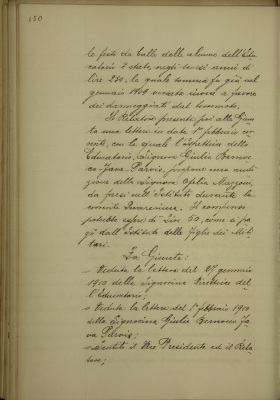 150
le feste da ballo delle alunne dell'Edu-
catorio è stato, negli scorsi anni di
lire 250, la quale somma fu già nel
gennaio 1909 versata invece a favore
dei danneggiati dal terremoto.
Il Relatore presenta poi alla Giun-
ta una lettera in data 1° febbraio cor-
rente, con la quale l'Ispettrice dello
Educatorio, Signora Giulia Bernoc-
co Fava-Parvis, propone una audi-
zione della Signora Ofelia Mazzoni,
da farsi nell'Istituto durante la
corrente Quaresima. Il compenso
potrebbe essere di Lire 50, come si fa
già dall'Istituto delle Figlie dei Mili-
tari.
La Giunta:
- Veduta la lettera del 27 gennaio
1910 della Signorina Direttrice del-
l'Educatorio;
- Veduta la lettera del 1° febbraio 1910
della Signorina Giulia Bernocco Fa-
va Parvis;
- Sentiti il Vice Presidente ed il Rela-
tore;